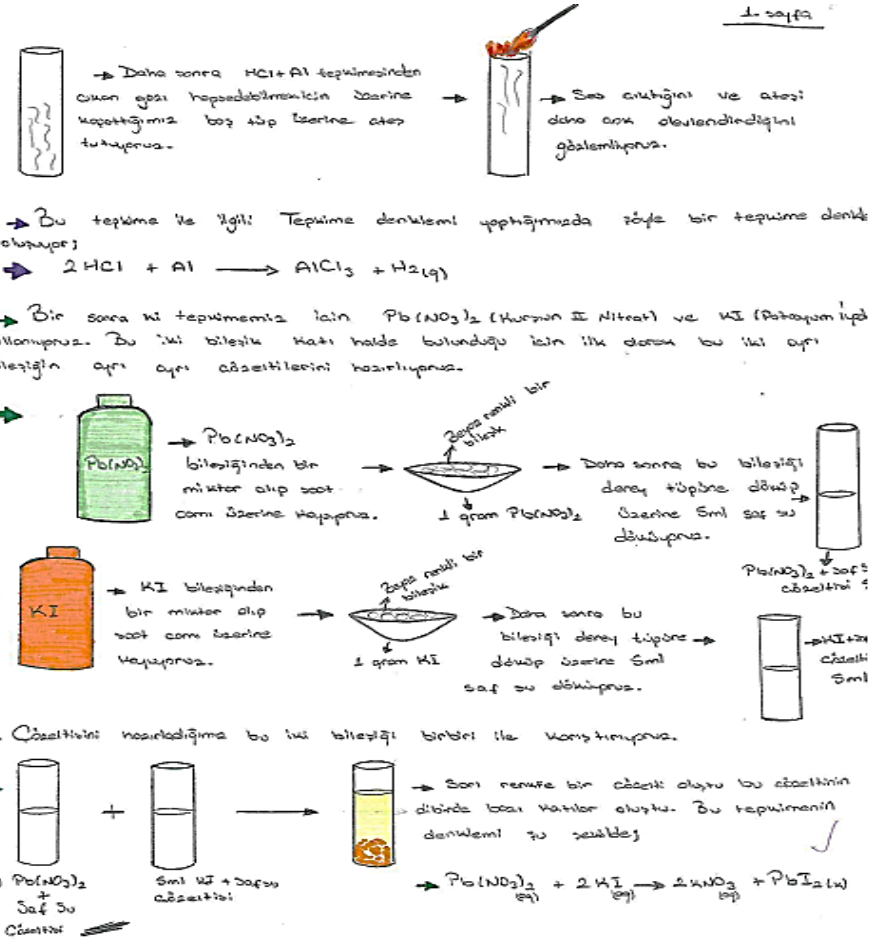 1. sayfa
→ Daha sonra HCl + Al tepkimesinden
çıkan gazı hapsedebilmek için üzerine
kapattığımız boş tüp üzerine ateş
tutuyoruz.
→ Ses çıktığını ve ateşi
daha çok alevlendirdiğini
gözlemliyoruz.
→ Bu tepkime ile ilgili Tepkime denklemi yaptığımızda şöyle bir tepkime denkle
oluşuyor;
→ 2HCl + Al → AlCl3 + H2(g)
→ Bir sonra ki tepkimemiz için Pb(NO3)2 (Kurşun II Nitrat) ve KI (Potasyum İyod
llanıyoruz. Bu iki bileşik katı halde bulunduğu için ilk olarak bu iki ayrı
leşiğin ayrı ayrı çözeltilerini hazırlıyoruz.
Pb(NO3)2
→ Pb(NO3)2
bileşiğinden bir
miktar alıp saat
camı üzerine koyuyoruz.
Beyaz renkli bir
bileşik
1 gram Pb(NO3)2
→ Daha sonra bu bileşiği
deney tüpüne döküp
üzerine 5ml saf su
döküyoruz.
Pb(NO3)2 + saf s
çözeltisi 5
KI
→ KI bileşiğinden
bir miktar alıp
saat camı üzerine
koyuyoruz.
Beyaz renkli bir
bileşik
1 gram KI
→ Daha sonra bu
bileşiği deney tüpüne
döküp üzerine 5ml
saf su döküyoruz.
→ KI + sa
çözelti
5ml
Çözeltisini hazırladığımız bu iki bileşiği birbiri ile karıştırıyoruz.
+
→ Sarı renkte bir çözelti oluştu bu çözeltinin
dibinde bazı katılar oluştu. Bu tepkimenin
denklemi şu şekilde;
Pb(NO3)2
+
Saf Su
Çözeltisi
5ml KI + Saf su
çözeltisi
→ Pb(NO3)2 (aq) + 2KI (aq) → 2KNO3 (aq) + PbI2(k)